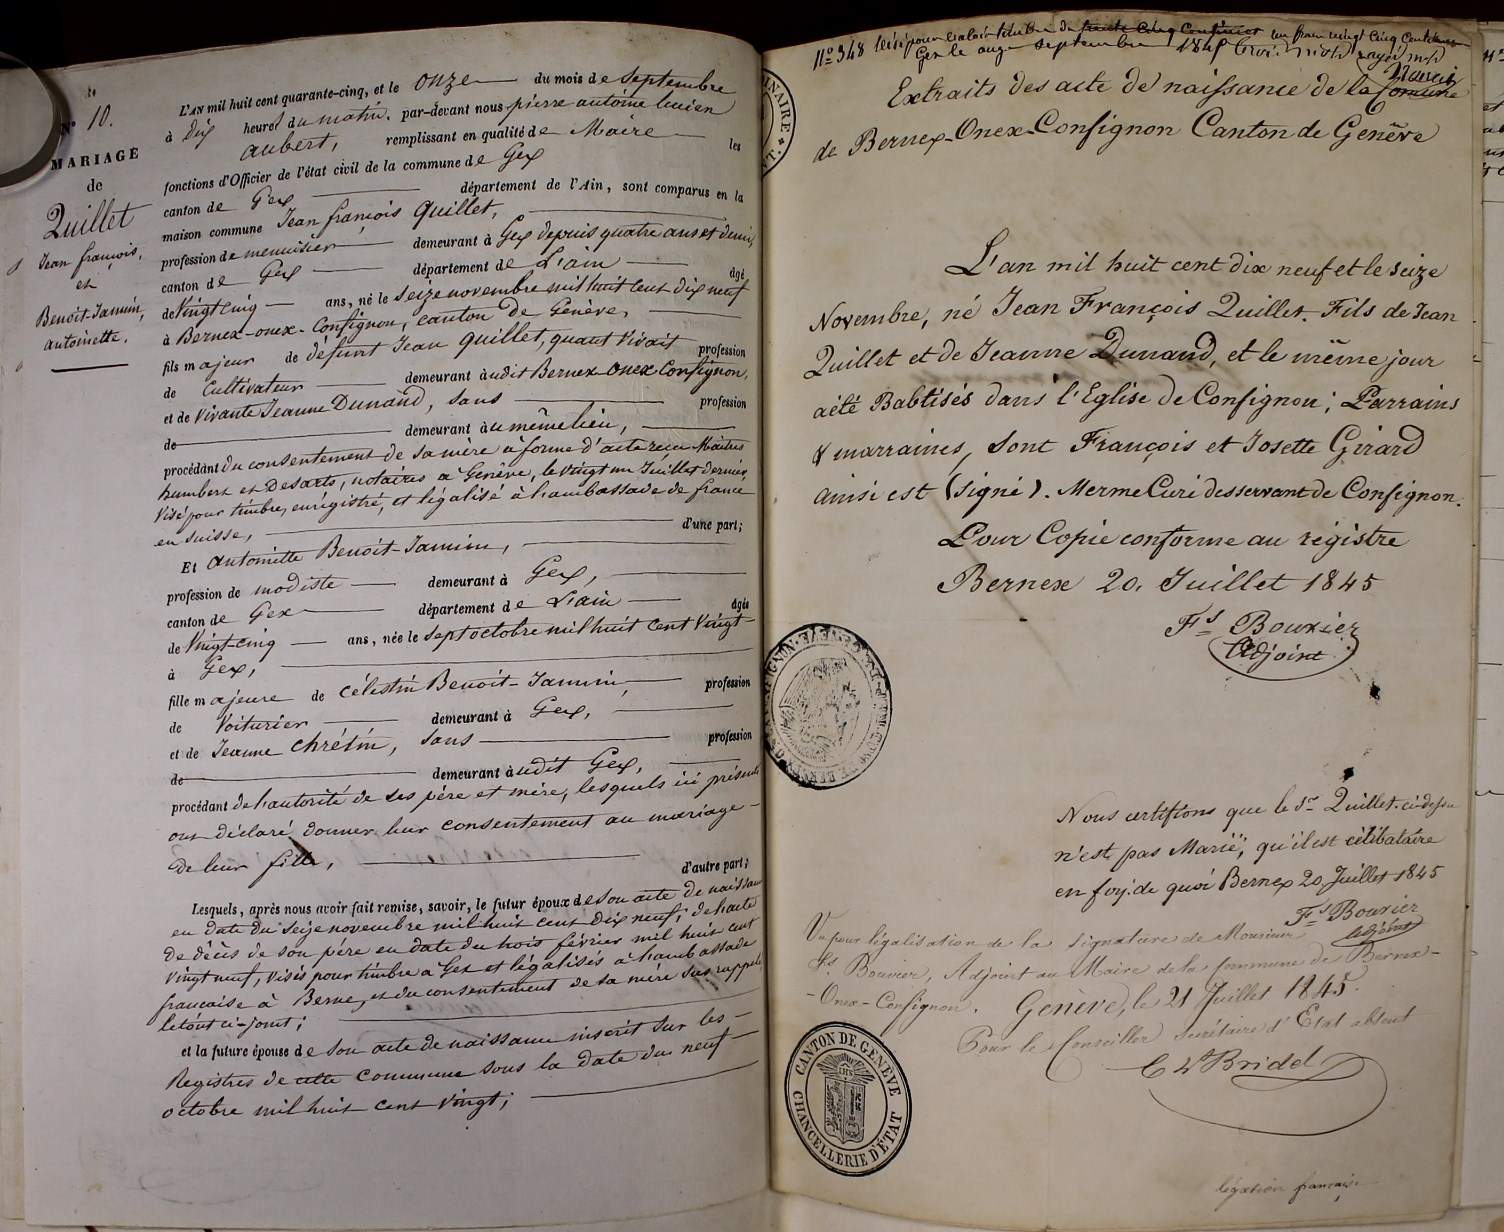 N° 10.
MARIAGE
de
Quillet
Jean françois,
et
Benoit-Jannin,
antoinette.
L'AN mil huit cent quarante-cinq, et le onze du mois de Septembre
à dix heures du matin, par-devant nous pierre antoine lucien
aubert, remplissant en qualité de Maire les
fonctions d'Officier de l'état civil de la commune de Gex
canton de Gex département de l'Ain, sont comparus en la
maison commune Jean françois Quillet,
profession de menuisier demeurant à Gex depuis quatre ans et demi,
canton de Gex département de L'ain âgé
de Vingt cinq ans, né le Seize novembre mil huit cent dix neuf
à Bernex-onex-Confignon, canton de Genève,
fils majeur de défunt Jean Quillet, quant vivait profession
de Cultivateur demeurant àudit Bernex Onex Confignon,
et de Vivante Jeanne Dunand, Sans profession
de demeurant àu même lieu,
procédant du consentement de Sa mère à forme d'acte reçu Maîtres
humbert et Desarts, notaires à Genève, le vingt un Juillet dernier
Visé pour timbre, enrégistré, et légalisé à L'ambassade de france
en suisse, d'une part;
Et Antoinette Benoit-Jannin,
profession de modiste demeurant à Gex,
canton de Gex département de L'ain âgée
de Vingt-cinq ans, née le Sept octobre mil huit cent Vingt
à Gex,
fille majeure de célestin Benoit-Jannin, profession
de Voiturier demeurant à Gex,
et de Jeanne chrétin, Sans profession
de demeurant àudit Gex,
procédant de L'autorité de Ses père et mère, lesquels ici présents
ont déclaré donner leur consentement au mariage
de leur fille, d'autre part;
Lesquels, après nous avoir fait remise, savoir, le futur époux de Son acte de naissance
en date du Seize novembre mil huit cent dix neuf; de L'acte
de décès de Son père en date du trois février mil huit cent
vingt neuf, visés pour timbre à Gex et légalisés à L'ambassade
française à Berne, et du consentement de Sa mère Sus rappelé
le tout ci-joint;
et la future épouse de Son acte de naissance inscrit Sur les
Registres de cette Commune Sous la date du neuf
octobre mil huit cent Vingt;
N° 348 Visé pour valoir timbre de trente cinq centimes un franc vingt cinq centimes
Gex le onze Septembre 1845 trois mots rayés nuls
Extraits des acte de naissance de la Comune
de Bernex-Onex-Confignon Canton de Genève
L'an mil huit cent dix neuf et le seize
Novembre, né Jean François Quillet. Fils de Jean
Quillet et de Jeanne Dunand, et le même jour
a été Babtisés dans l'Eglise de Confignon; Parrains
& marraines, sont François et Josette Girard
ainsi est (signé). Merme Curé desservant de Confignon.
Pour Copie conforme au régistre
Bernex 20. Juillet 1845
Fs Bouvier
Adjoint
Nous certifions que le Sr Quillet ci-dessu
n'est pas Marié, qu'il est célibataire
en foy de quoi Bernex 20 Juillet 1845
Fs Bouvier
Adjoint
Vu pour légalisation de la signature de Monsieur
Fs Bouvier, Adjoint au Maire de la Commune de Bernex-
-Onex-Confignon. Genève, le 21 Juillet 1845.
Pour le Conseiller Secrétaire d'Etat absent
Bridel
CANTON DE GENEVE
CHANCELLERIE D'ÉTAT
légation française